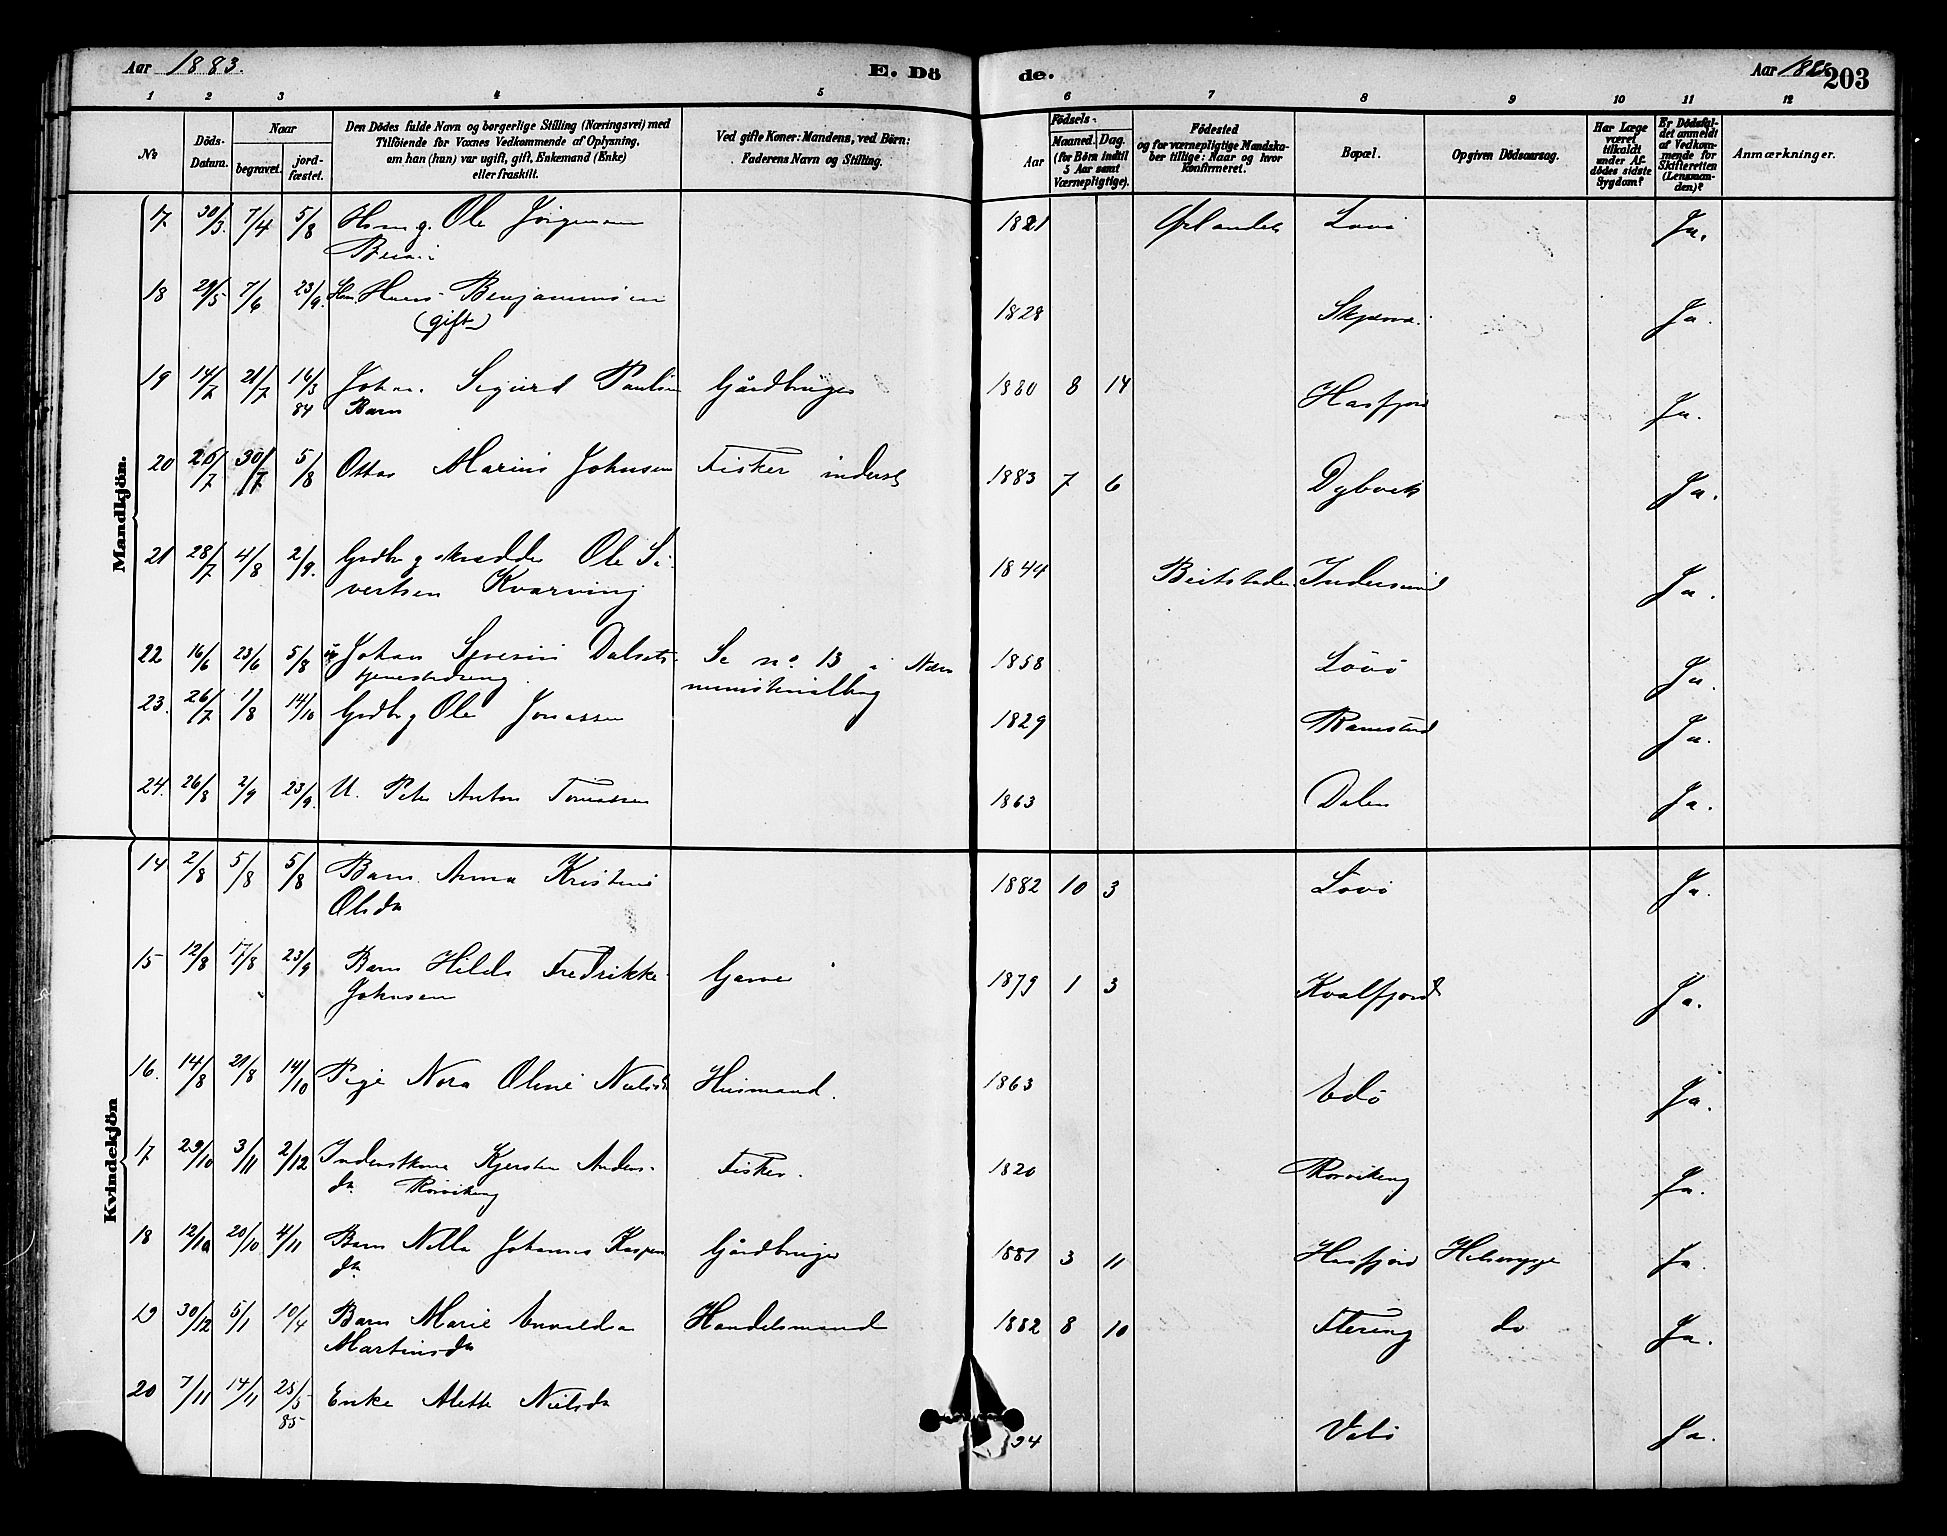 Aar 1883. E. Dö de. Aar 203
1 2 3 4 5 6 7 8 9 10 11 12
No Döds-Datum. Naar begravet. jord-fæstet. Den Dödes fulde Navn og borgerlige Stilling (Næringsvei) med Tilföiende for Voxnes Vedkommende af Oplysning, om han (hun) var ugift, gift, Enkemand (Enke) eller fraskilt. Ved gifte Koner: Mandens, ved Börn: Faderens Navn og Stilling. Födsels- Aar Maaned. Dag. (for Börn indtil 5 Aar samt Værnepligtige). Födested og for værnepligtige Mandskaber tillige: Naar og hvor konfirmeret. Bopæl. Opgiven Dödsaarsag. Har Læge været tilkaldt under Afdödes sidste Sygdom? Er Dödsfaldet anmeldt af Vedkommende for Skifteretten (Lensmanden)? Anmærkninger.
Mandkjön.
17 30/3. 7/4 5/8 Ole Jörgensen 1821 Lovö Ja.
18 29/5 7/6 23/9. Hans Benjaminsen 1828 Ja.
(gift)
19 14/7 21/7 16/3 84 Johan Sigurd Paulsen Gårdbruger 1880 8 14 Hasfjord Ja.
Barn
20 26/7 30/7 5/8 Marius Johnsen Fisker inderst 1883 7 6 Dybvik Ja.
21 28/7 4/8 2/9. Grdbr g skrædder Ole Si- 1844 Beitstaden Indersund Ja.
vertsen Kvarving
22 16/6 23/6 5/8 ug Johan Severin Se no 13 i 1858 Lövö Ja.
tjenestdreng ministerialbog
23. 26/7 1/8 14/10 Grdbr g Ole Jonassen 1829 Ramstad Ja.
24. 26/8 2/9 23/9. U. Peter Anton Tomassen 1863 Dalen Ja.
Kvindekjön
14 2/8 5/8 5/8 Barn Anna Kristine 1882 10 3 Lovö Ja.
Olsda
15 12/8 17/8 23/9 Barn Hilda Fredrikke 1879 1 3 Kvalfjord Ja.
Johnsen
16. 14/8 21/8 14/10 Pige Nora Oline Nielsda Husmand. 1863 Edö Ja.
17 29/10 3/11 2/12 Inderstkone Kjersten Anders- Fisker. 1820 Rorvikeng Ja.
da Rorvikeng
18 12/10 20/10 4/11 Barn Nilla Johanna Kaspers Gårdbruger 1881 3 11 Hasfjord Ja.
da
19 30/12 5/1 10/4 Barn Marie Handelsmand 1882 8 10 Flering do Ja.
Martinsda
20 7/11 14/11 25/5 85 Enke Alette Nielsda 94 Valö Ja.